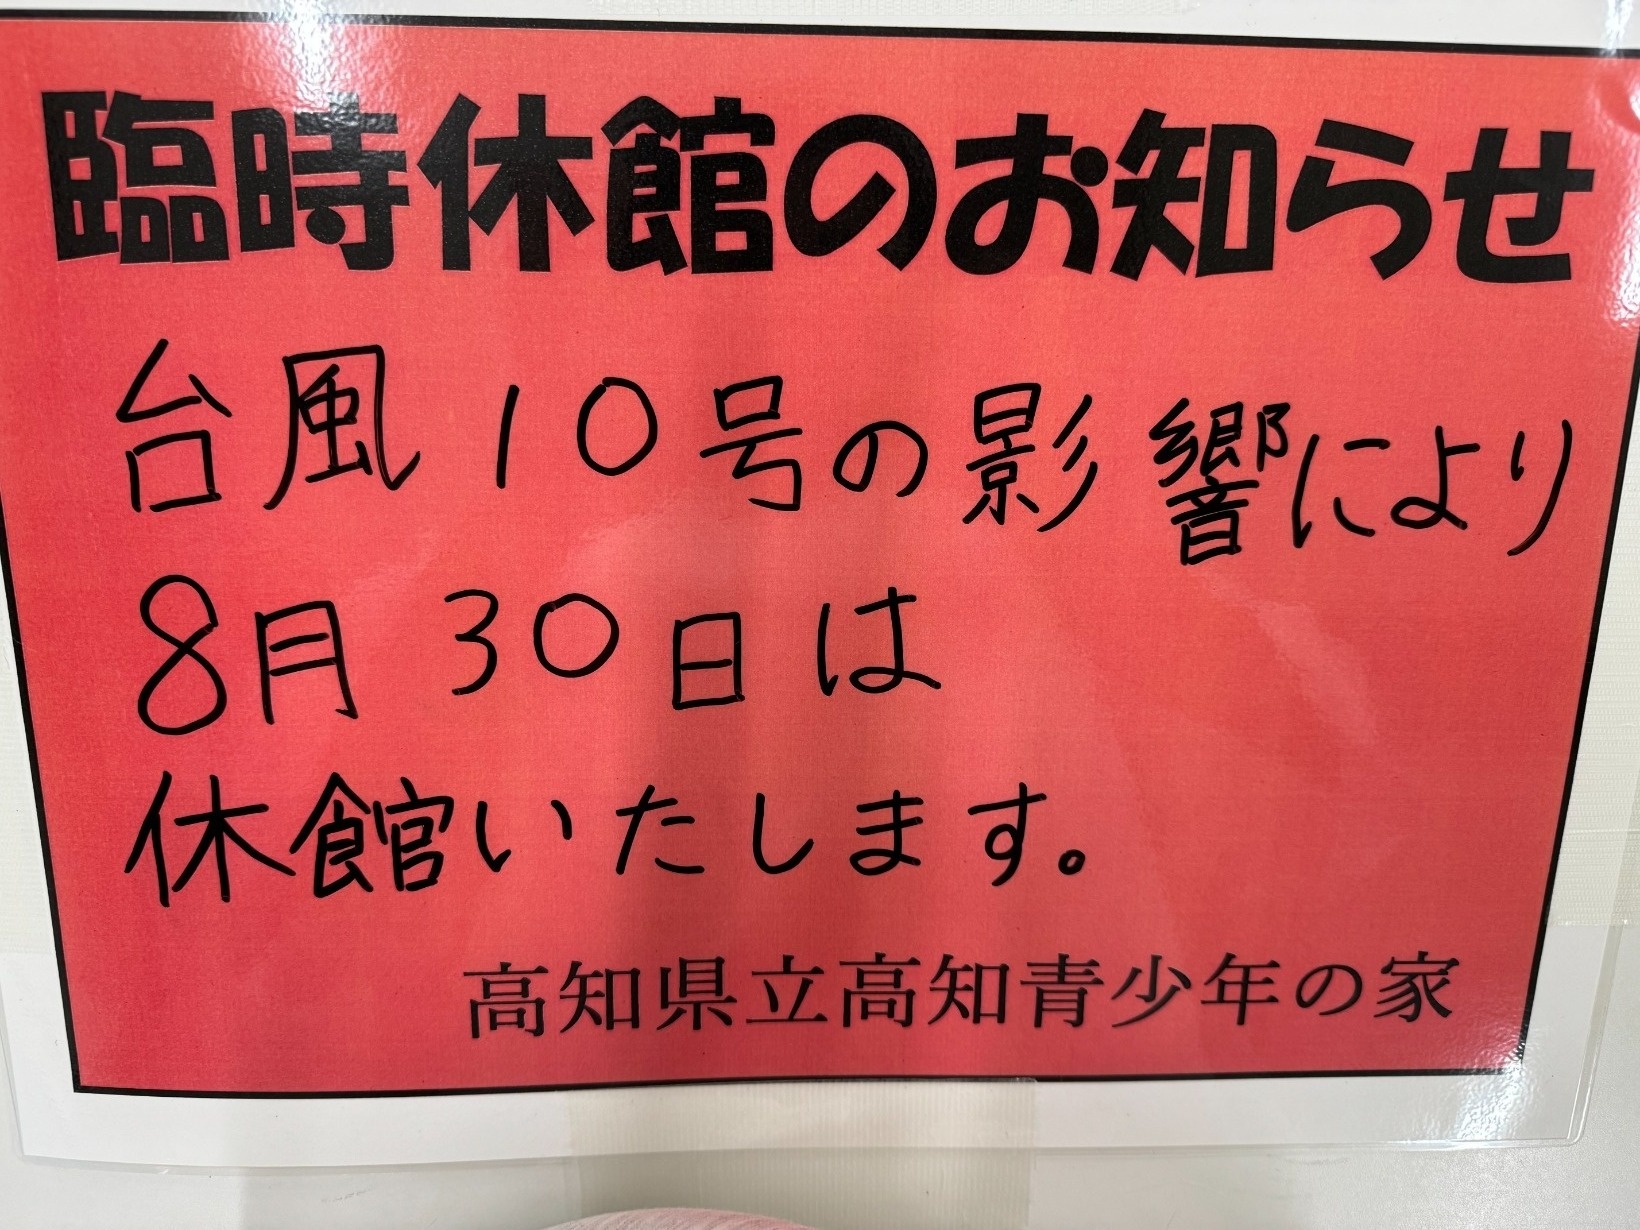 臨時休館のお知らせ
台風10号の影響により
8月30日は
休館いたします。
高知県立高知青少年の家